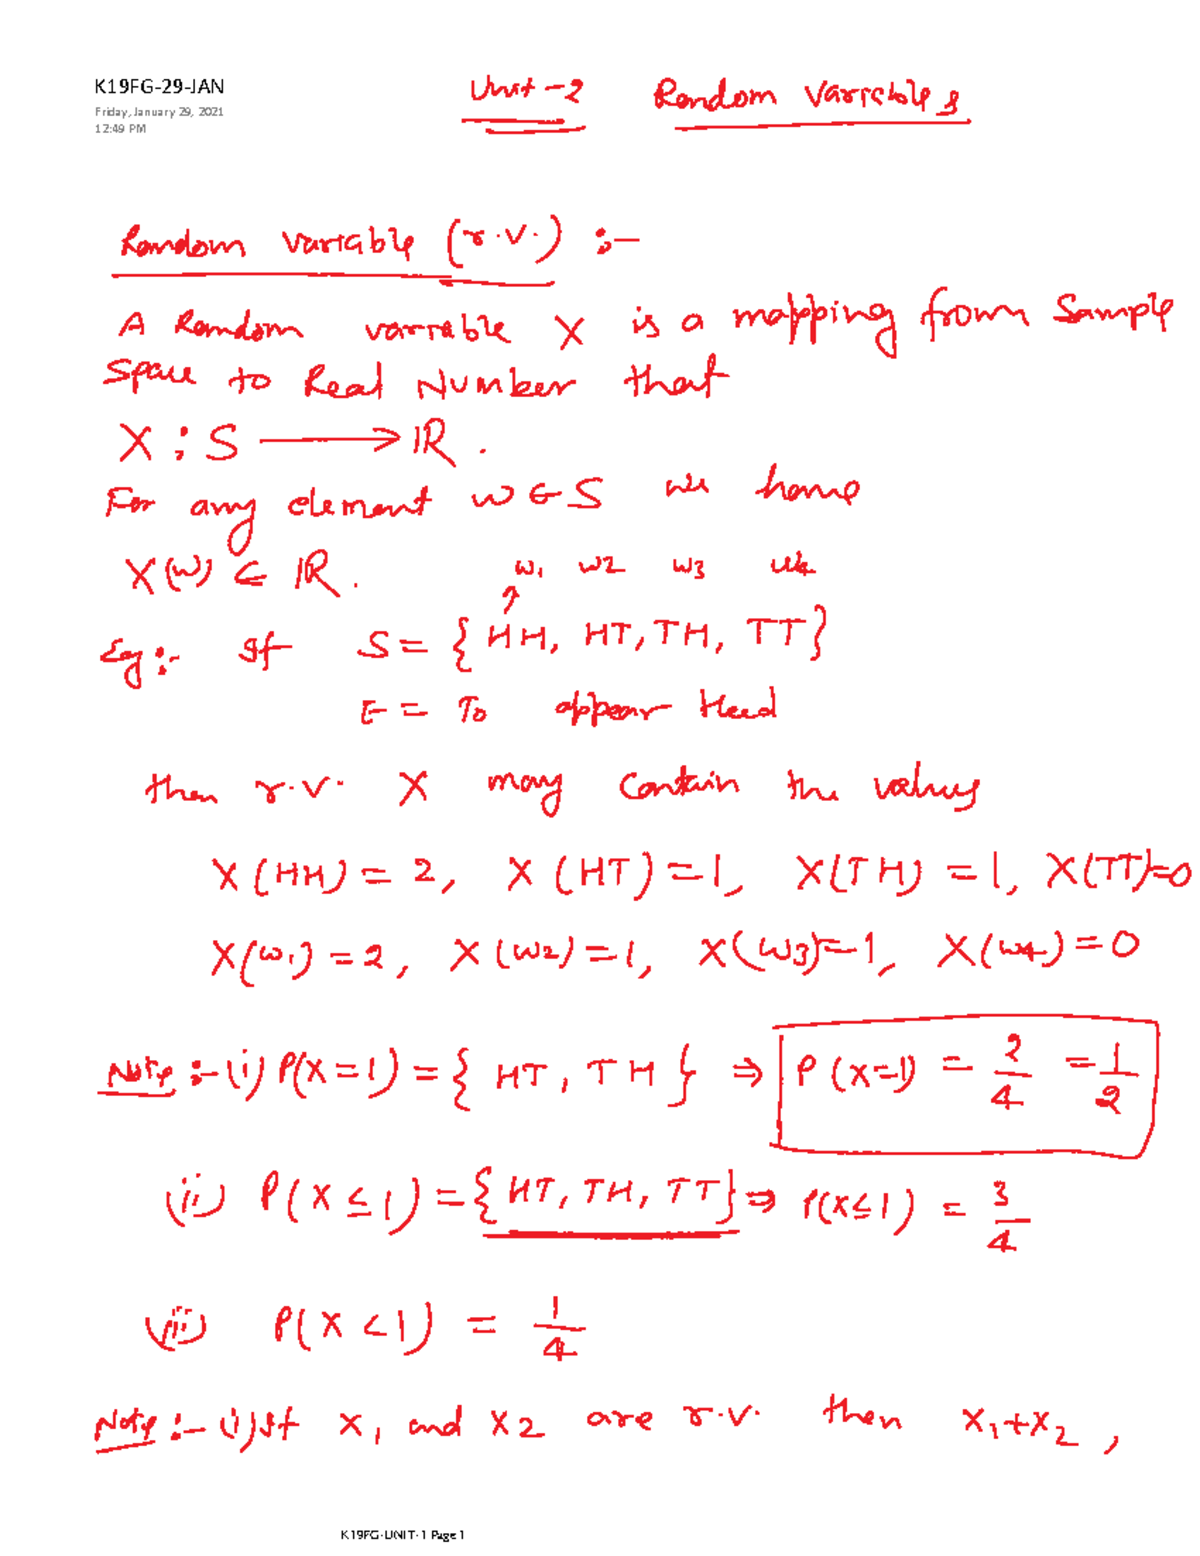 K19FG-29-JAN
Friday, January 29, 2021
12:49 PM
Unit-2 Random Variables
Random variable (r.v.) :-
A Random variable X is a mapping from Sample
Space to Real Number that
X : S ⟶ ℝ .
For any element w ∈ S we have
X(w) ∈ ℝ .
w1 w2 w3 w4
↑
Eg:- If S = { HH, HT, TH, TT }
E = To appear Head
then r.v. X may contain the values
X(HH) = 2, X(HT) = 1, X(TH) = 1, X(TT)=0
X(w1) = 2, X(w2) = 1, X(w3)=1, X(w4) = 0
Note :- (i) P(X=1) = { HT, TH } ⇒ P(X=1) = 2/4 = 1/2
(ii) P(X ≤ 1) = { HT, TH, TT } ⇒ P(X≤1) = 3/4
(iii) P(X < 1) = 1/4
Note :- (i) If X1 and X2 are r.v. then X1+X2 ,
K19FG-UNIT-1 Page 1